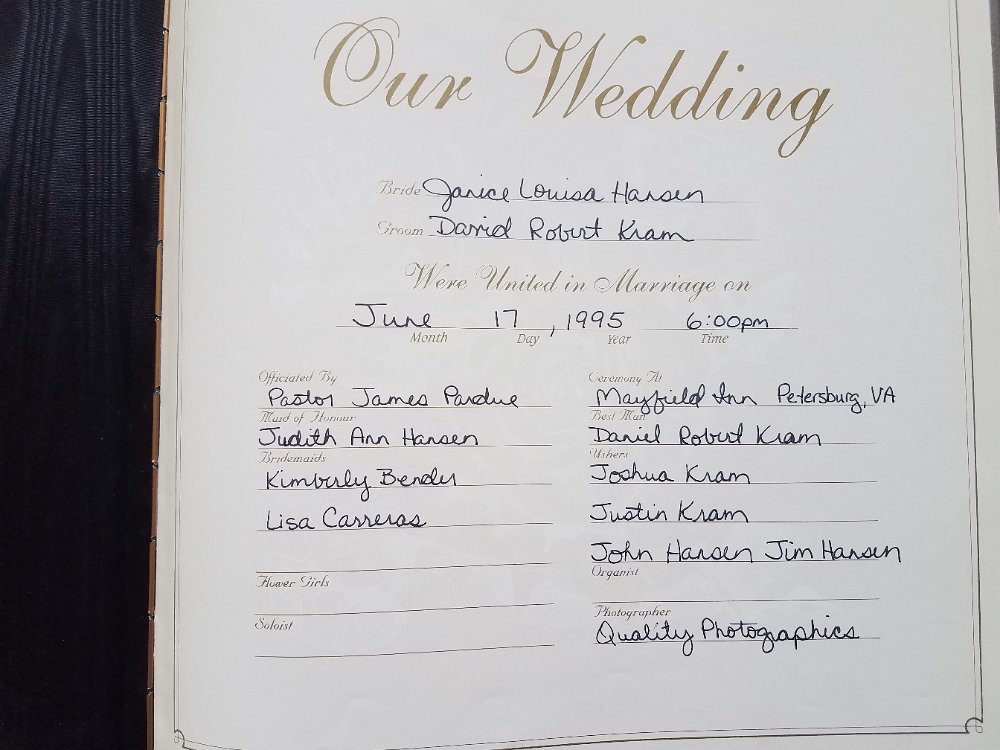 Our Wedding
Bride Janice Louisa Hansen
Groom David Robert Kram
Were United in Marriage on
June 17, 1995 6:00pm
Month Day Year Time
Officiated By
Pastor James Pardue
Maid of Honour
Judith Ann Hansen
Bridemaids
Kimberly Bender
Lisa Carreras
Flower Girls
Soloist
Ceremony At
Mayfield Inn Petersburg, VA
Best Man
Daniel Robert Kram
Ushers
Joshua Kram
Justin Kram
John Hansen Jim Hansen
Organist
Photographer
Quality Photographics